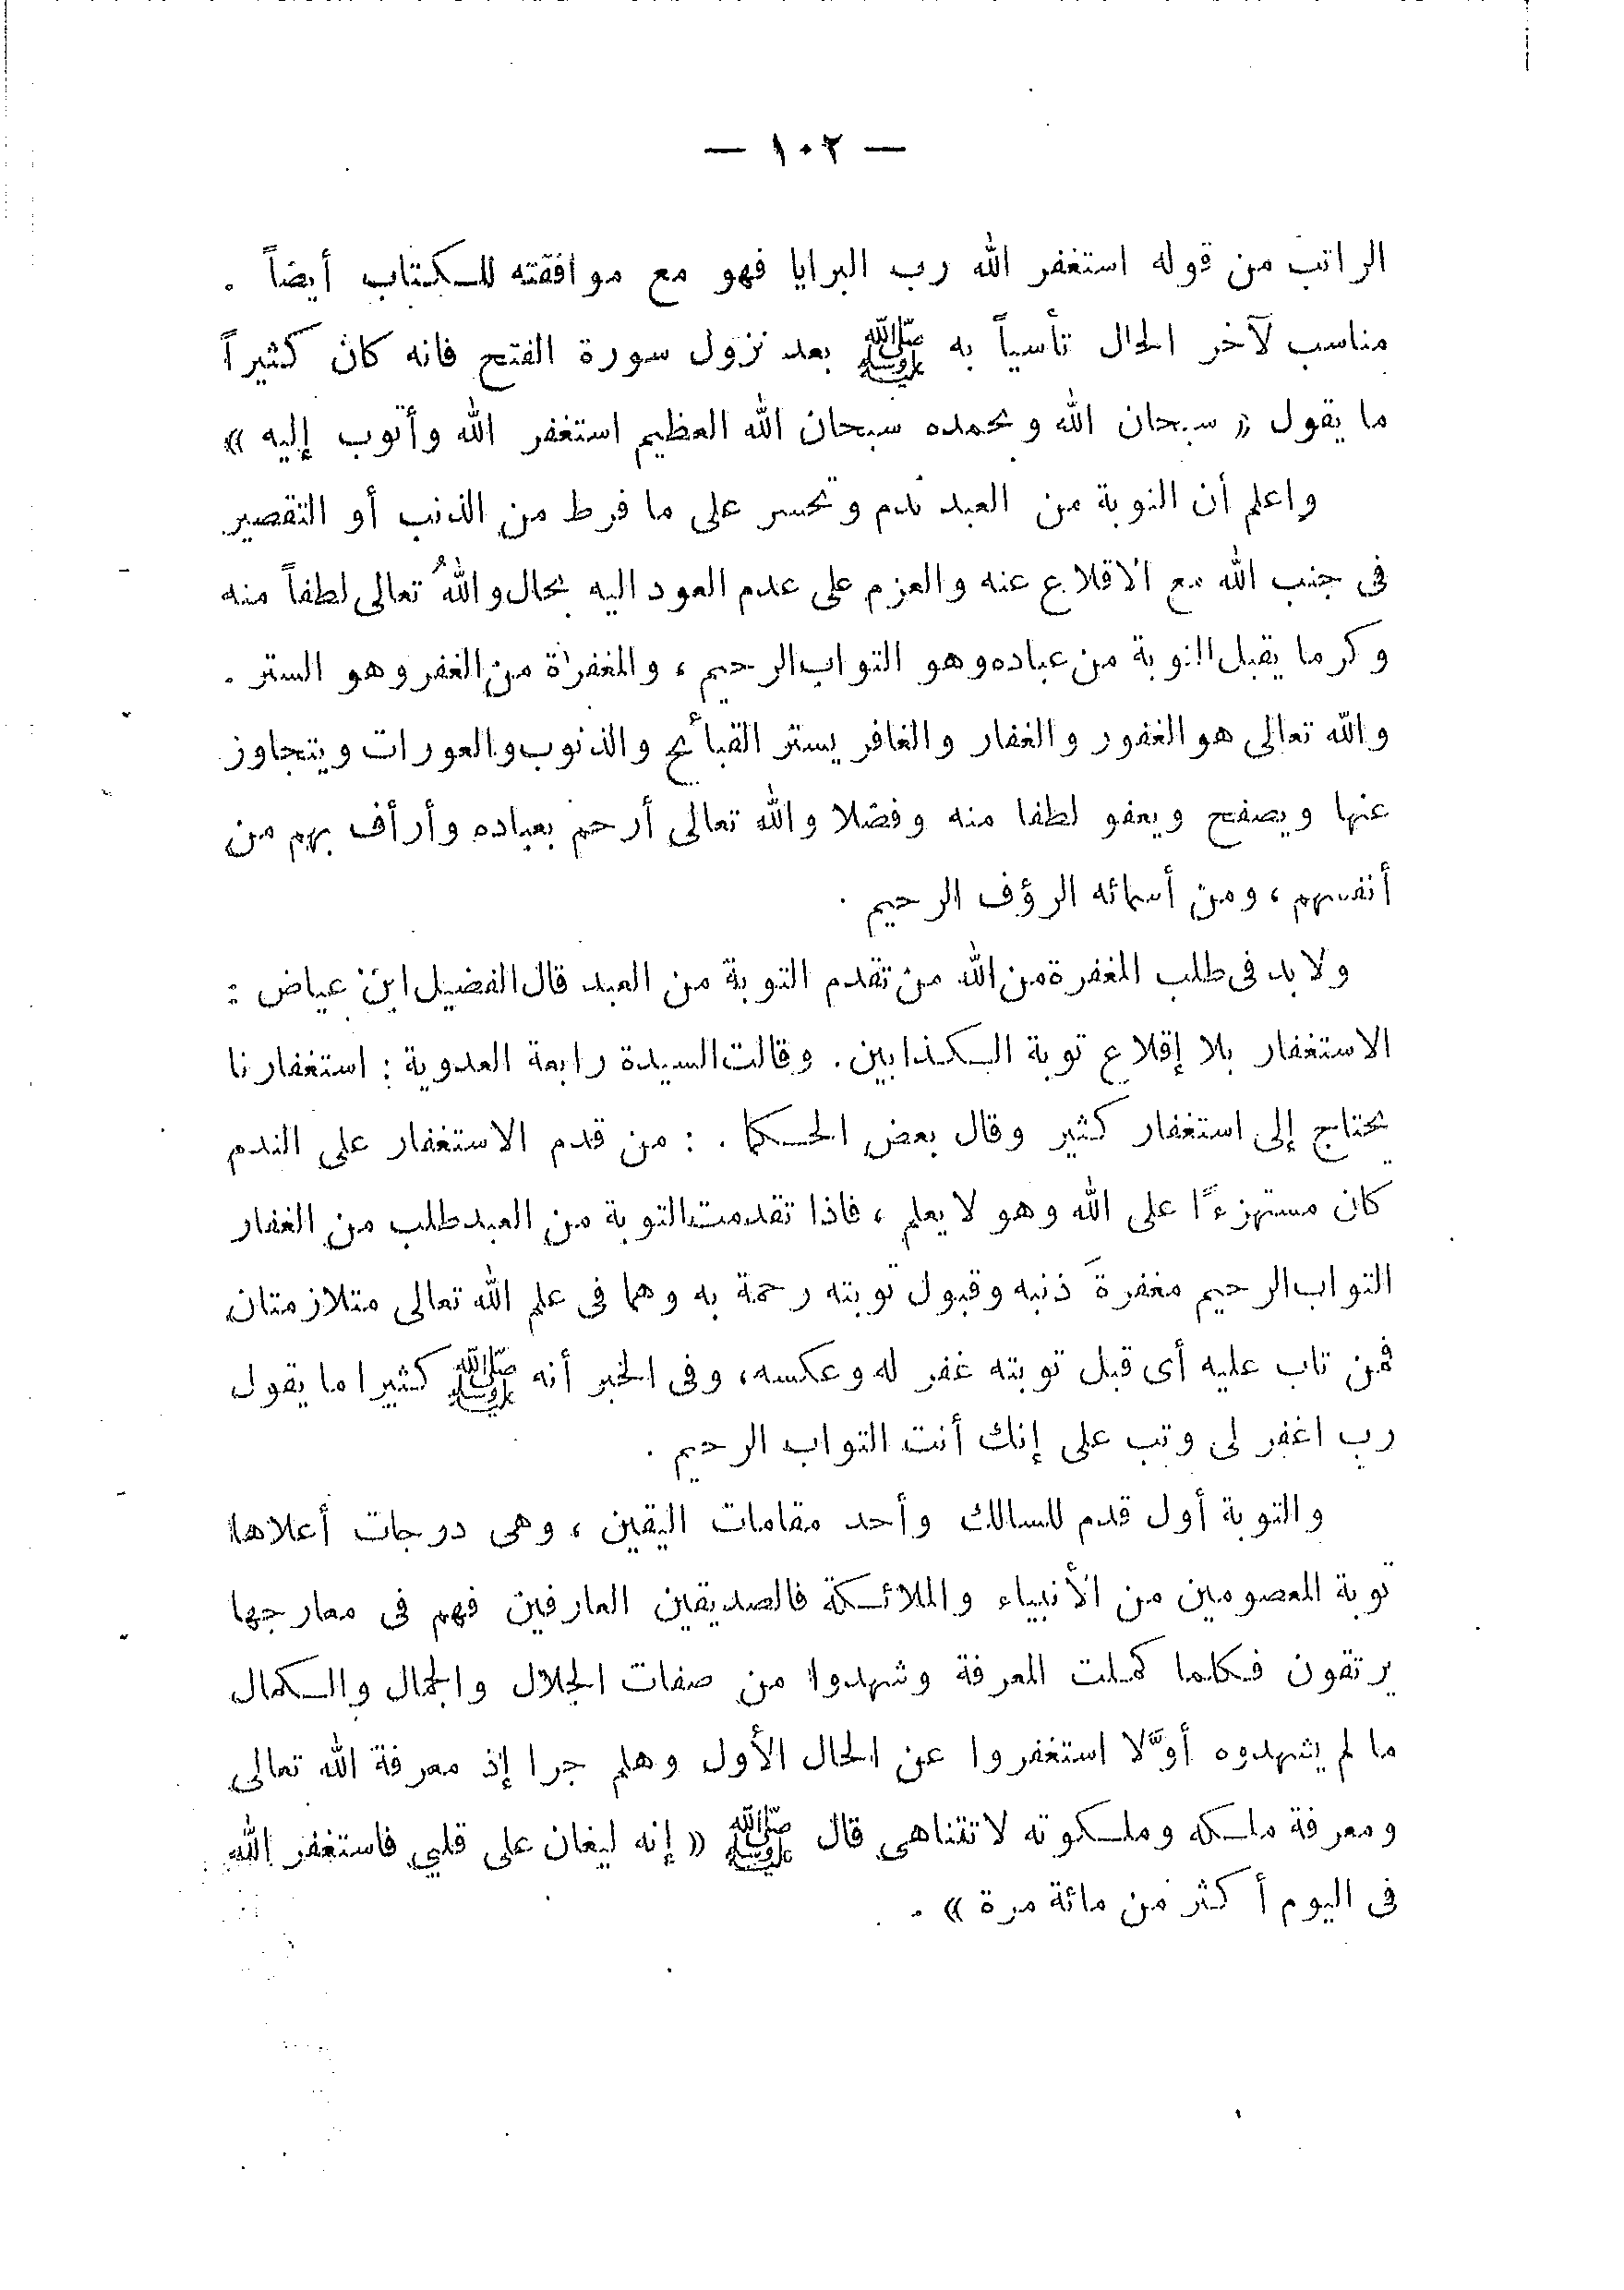 — ١٠٢ —
الراتب من قوله استغفر الله رب البرايا فهو مع موافقته للكتاب أيضاً .
مناسب لآخر الحال تأسياً به ﷺ بعد نزول سورة الفتح فانه كان كثيراً
ما يقول « سبحان الله وبحمده سبحان الله العظيم استغفر الله وأتوب إليه »
واعلم أن التوبة من العبد ندم وتحسر على ما فرط من الذنب أو التقصير
فى جنب الله مع الاقلاع عنه والعزم على عدم العود اليه بحال واللهُ تعالى لطفاً منه
وكرما يقبل التوبة من عباده وهو التواب الرحيم ، والمغفرة من الغفر وهو الستر .
والله تعالى هو الغفور والغفار والغافر يستر القبائح والذنوب والعورات ويتجاوز
عنها ويصفح ويعفو لطفا منه وفضلا والله تعالى أرحم بعباده وأرأف بهم من
أنفسهم ، ومن أسمائه الرؤف الرحيم .
ولا بد فى طلب المغفرة من الله من تقدم التوبة من العبد قال الفضيل ابن عياض :
الاستغفار بلا إقلاع توبة الكذابين . وقالت السيدة رابعة العدوية : استغفارنا
يحتاج إلى استغفار كثير وقال بعض الحكماء : من قدم الاستغفار على الندم
كان مستهزءًا على الله وهو لا يعلم ، فاذا تقدمت التوبة من العبد طلب من الغفار
التواب الرحيم مغفرةَ ذنبه وقبول توبته رحمة به وهما فى علم الله تعالى متلازمتان
فمن تاب عليه أى قبل توبته غفر له وعكسه ، وفى الخبر أنه ﷺ كثيرا ما يقول
رب اغفر لى وتب على إنك أنت التواب الرحيم .
والتوبة أول قدم للسالك وأحد مقامات اليقين ، وهى درجات أعلاها
توبة المعصومين من الأنبياء والملائكة فالصديقين العارفين فهم فى معارجها
يرتقون فكلما كملت المعرفة وشهدوا من صفات الجلال والجمال والكمال
ما لم يشهدوه أوَّلا استغفروا عن الحال الأول وهلم جرا إذ معرفة الله تعالى
ومعرفة ملكه وملكوته لا تتناهى قال ﷺ « إنه ليغان على قلبي فاستغفر الله
فى اليوم أكثر من مائة مرة » .